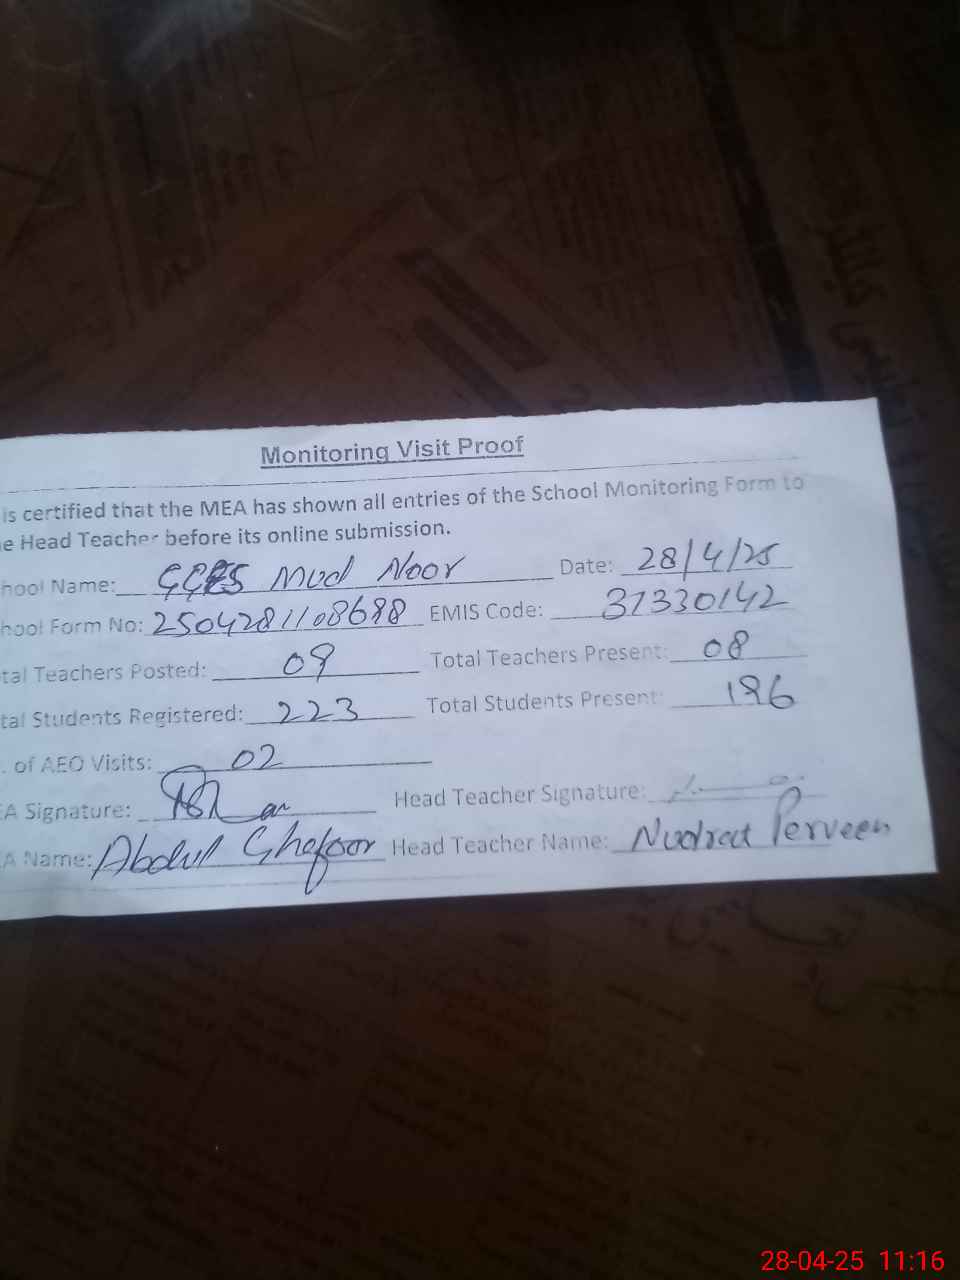 Monitoring Visit Proof
is certified that the MEA has shown all entries of the School Monitoring Form to
e Head Teacher before its online submission.
hool Name: GGES Mud Noor Date: 28/4/25
hool Form No: 2504281108688 EMIS Code: 31330142
tal Teachers Posted: 09 Total Teachers Present: 08
tal Students Registered: 223 Total Students Present: 196
. of AEO Visits: 02
EA Signature: Head Teacher Signature:
A Name: Abdul Ghafoor Head Teacher Name: Nudrat Perveen
28-04-25 11:16